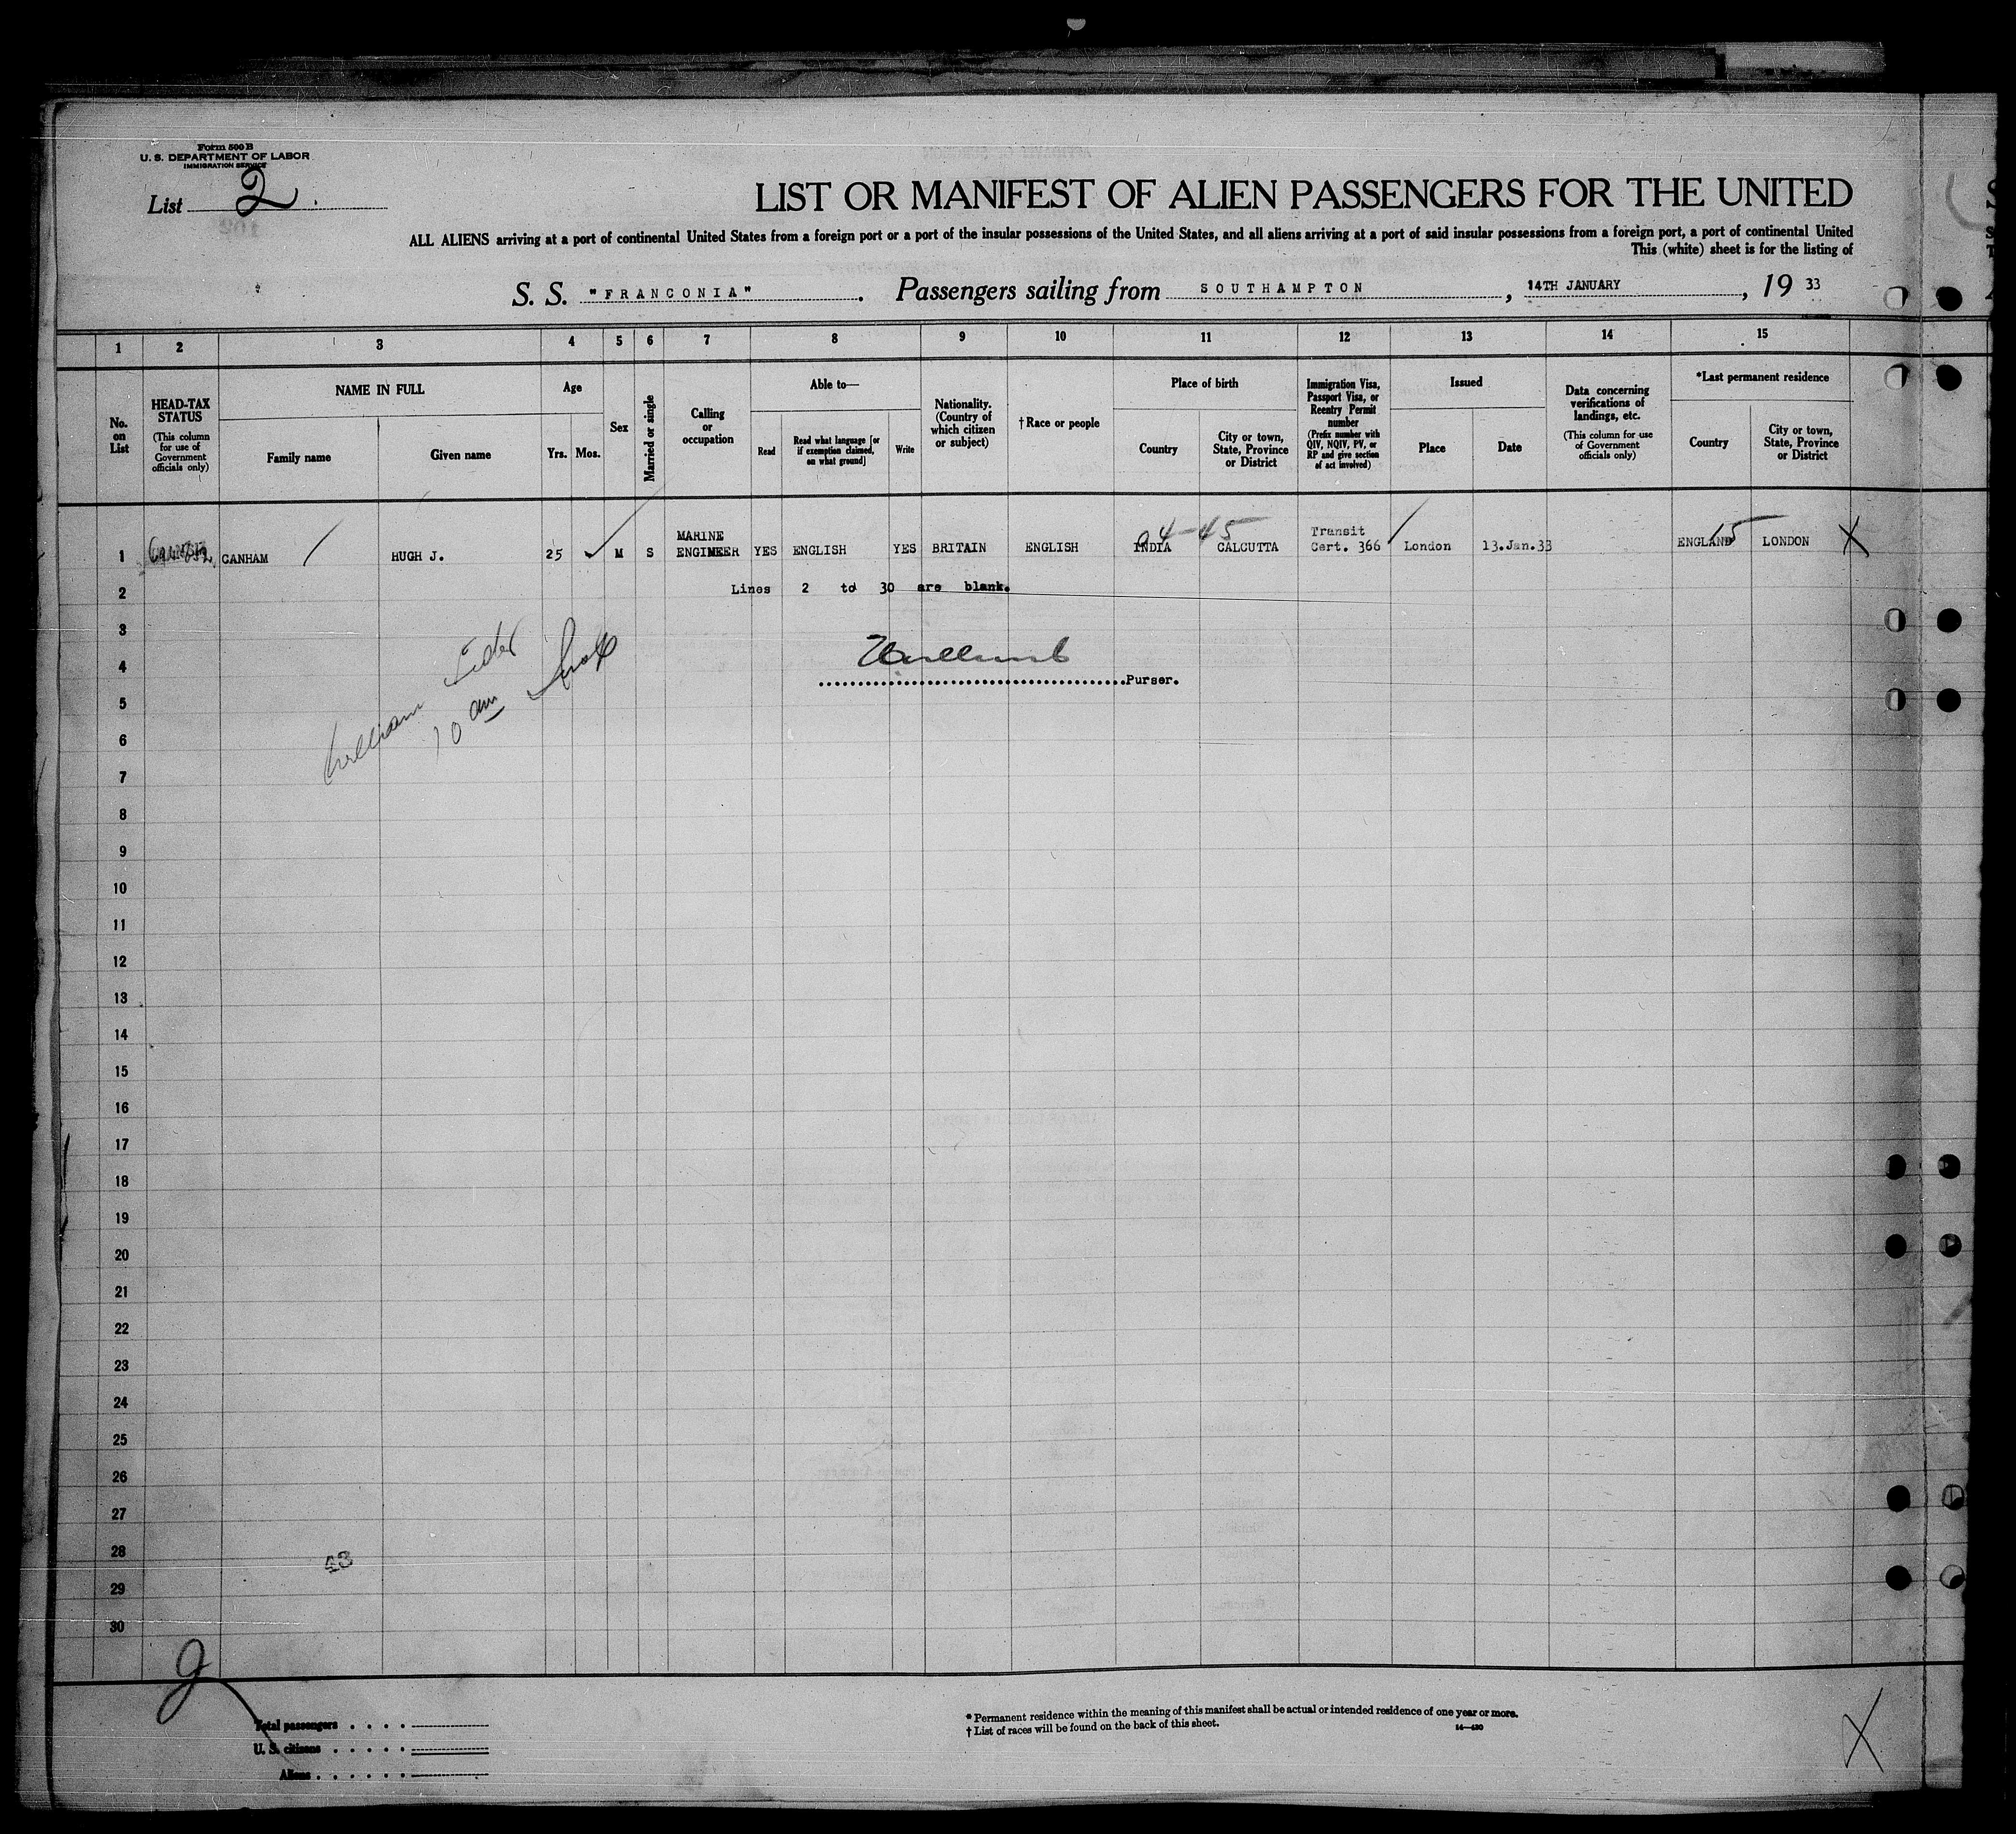 Form 500 B
U. S. DEPARTMENT OF LABOR
IMMIGRATION SERVICE
List 2
LIST OR MANIFEST OF ALIEN PASSENGERS FOR THE UNITED
ALL ALIENS arriving at a port of continental United States from a foreign port or a port of the insular possessions of the United States, and all aliens arriving at a port of said insular possessions from a foreign port, a port of continental United
This (white) sheet is for the listing of
S. S. "FRANCONIA". Passengers sailing from SOUTHAMPTON, 14TH JANUARY, 19 33
1 2 3 4 5 6 7 8 9 10 11 12 13 14 15
No. on List
HEAD-TAX STATUS (This column for use of Government officials only)
NAME IN FULL
Family name
Given name
Age
Yrs. Mos.
Sex
Married or single
Calling or occupation
Able to—
Read
Read what language [or if exemption claimed, on what ground]
Write
Nationality. (Country of which citizen or subject)
†Race or people
Place of birth
Country
City or town, State, Province or District
Immigration Visa, Passport Visa, or Reentry Permit number (Prefix number with QIV, NQIV, PV, or RP and give section of act involved)
Issued
Place
Date
Data concerning verifications of landings, etc. (This column for use of Government officials only)
*Last permanent residence
Country
City or town, State, Province or District
1 CANHAM HUGH J. 25 M S MARINE ENGINEER YES ENGLISH YES BRITAIN ENGLISH INDIA CALCUTTA Transit Cert. 366 London 13.Jan.33 ENGLAND LONDON X
4-45
15
2 Lines 2 to 30 are blank.
3
4
Purser.
5
William
10 am
6
7
8
9
10
11
12
13
14
15
16
17
18
19
20
21
22
23
24
25
26
27
28
43
29
30
Total passengers . . . .
U. S. citizens . . . . .
Aliens . . . . . .
* Permanent residence within the meaning of this manifest shall be actual or intended residence of one year or more.
† List of races will be found on the back of this sheet.
14—430
X